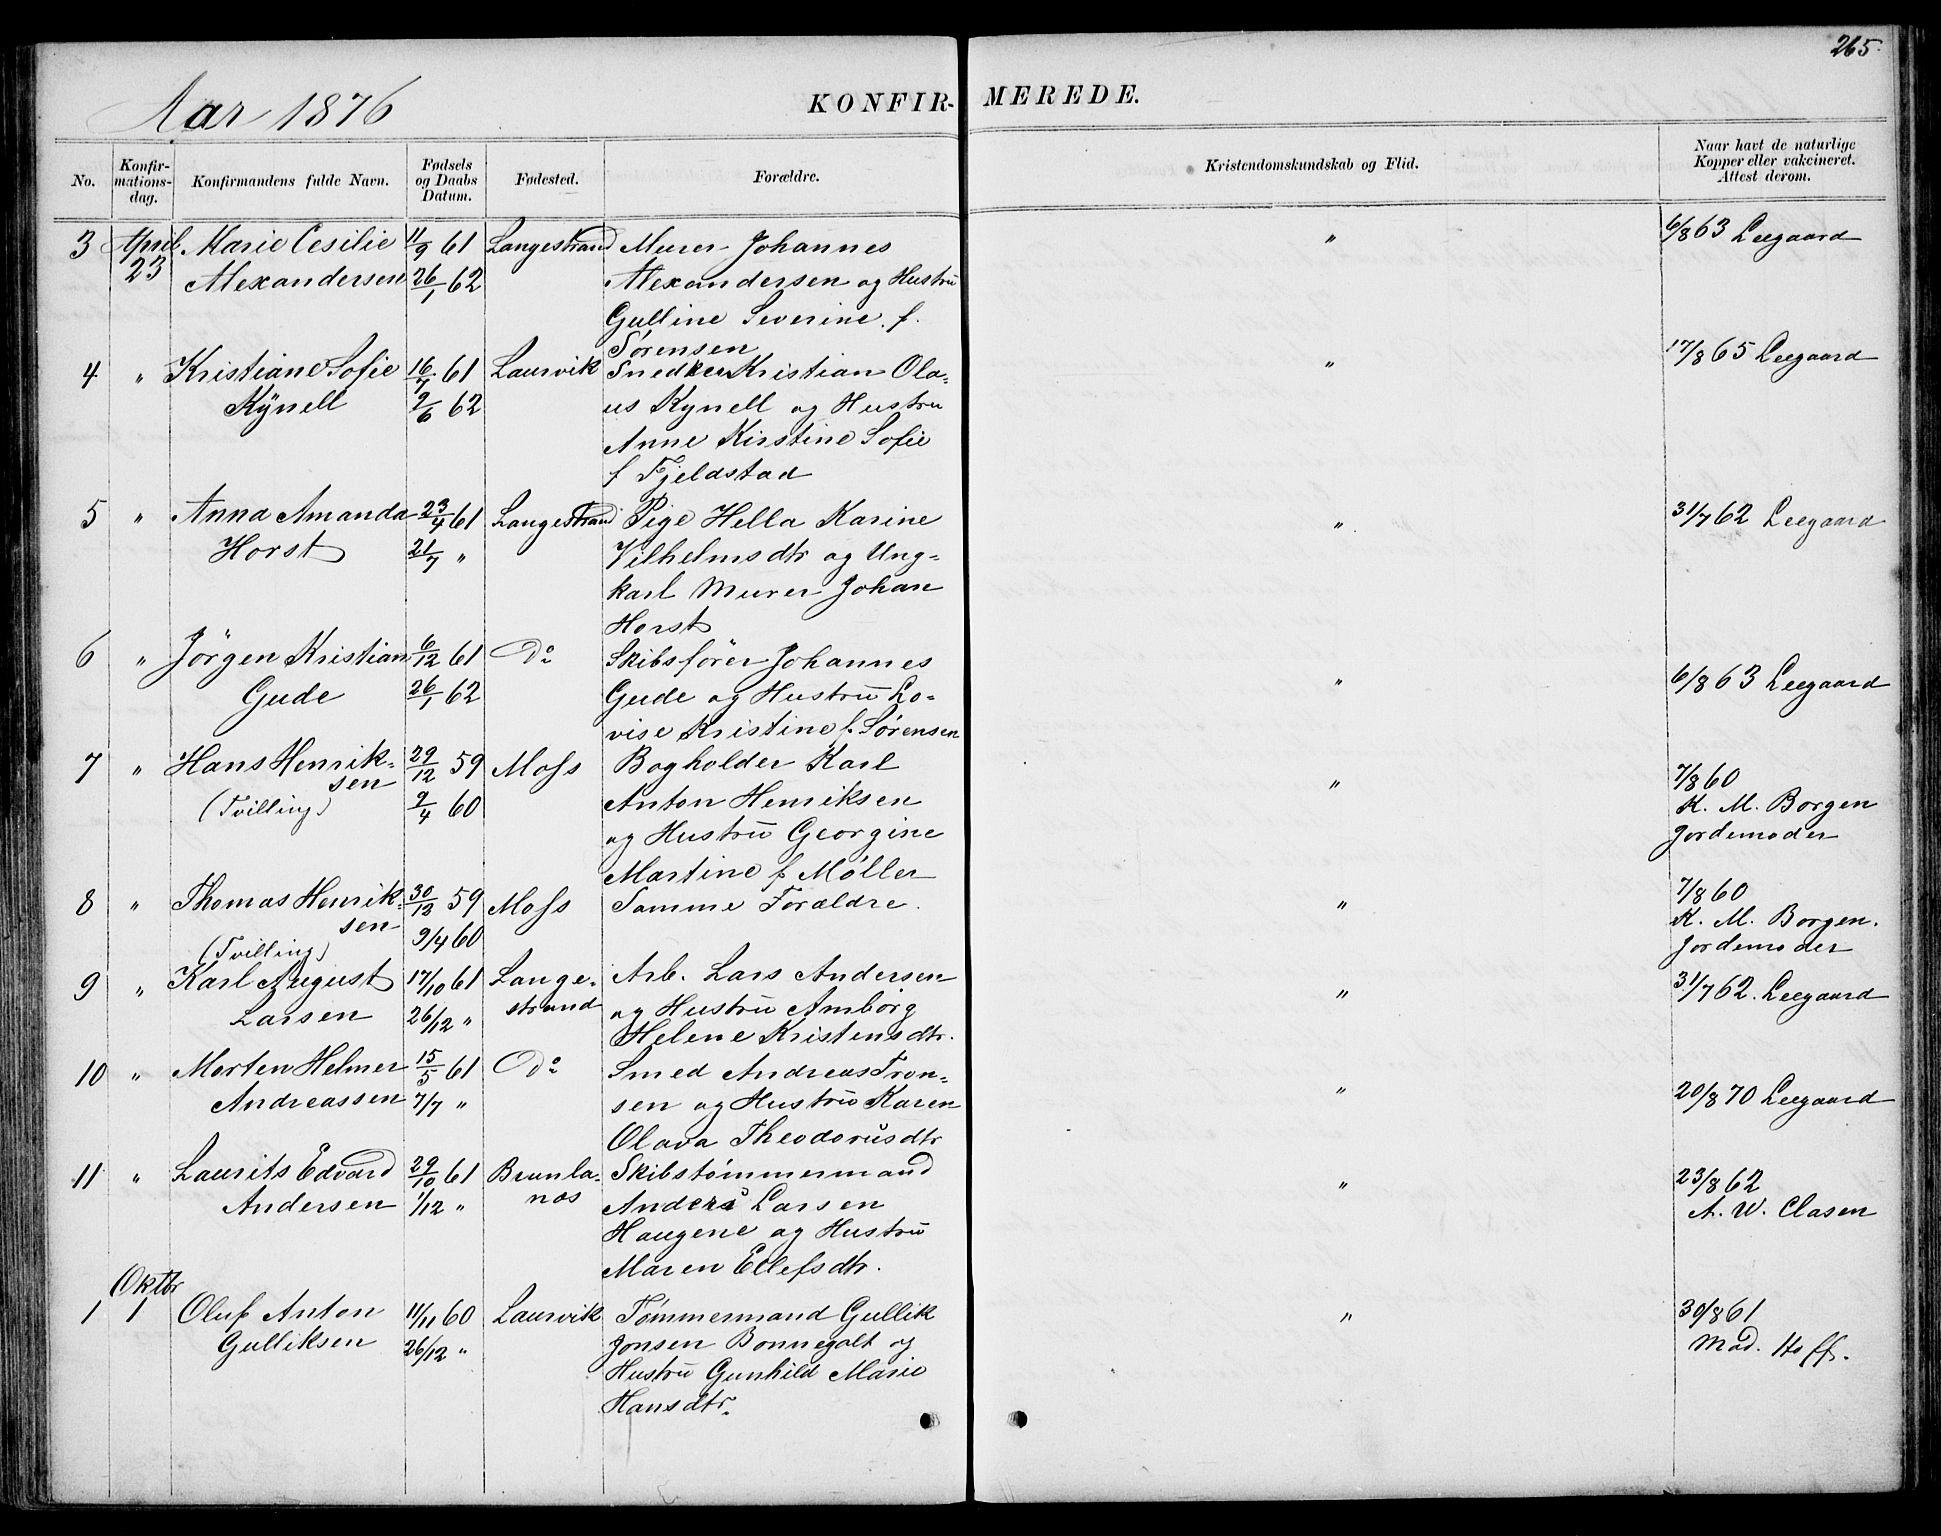 265.
Aar 1876
KONFIR- MEREDE.
No. Konfir-mations-dag. Konfirmandens fulde Navn. Fødsels og Daabs Datum. Fødested. Forældre. Kristendomskundskab og Flid. Naar havt de naturlige Kopper eller vakcineret. Attest derom.
3 April Marie Cesilie 11/9 61 Langestrand Murer Johannes " 6/8 63 Leegaard
23 Alexandersen 26/1 62 Alexandersen og Hustru
Gulline Severine f.
Sørensen
4 " Kristiane Sofie 16/7 61 Laurvik Snedker Kristian Ola- " 17/8 65 Leegaard
Kynell 9/6 62 us Kynell og Hustru
Anne Kirstine Sofie
f Fjeldstad
5 " Anna Amanda 23/4 61 Langestrand Pige Hella Karine " 31/7 62 Leegaard
Horst 21/7 " Vilhelmsdtr og Ung-
karl Murer Johan
Horst
6 " Jörgen Kristian 6/12 61 Do Skibsfören Johannes " 6/8 63 Leegaard
Gude 26/1 62 Gude og Hustru Lo-
vise Kristine f. Sørensen
7 " Hans Henrik- 29/12 59 Moss Bogholder Karl " 7/8 60
sen 9/4 60 Anton Henriksen K. M. Borgen
(Tvilling) og Hustru Georgine Jordemoder
Martine f Møller
8 " Thomas Henrik- 30/12 59 Moss Samme Forældre. " 7/8 60
sen 9/4 60 K. M. Borgen.
(Tvilling) Jordemoder
9 " Karl August 17/10 61 Lange- Arb. Lars Andersen " 31/7 62. Leegaard
Larsen 26/12 " strand og Hustru Amborg
Helene Kristensdtr.
10 " Morten Helmer 15/5 61 Do Smed Andreas Tron- " 20/8 70 Leegaard
Andreassen 7/7 " sen og Hustru Karen
Olava Theodorusdtr
11 " Laurits Edvard 29/10 61 Brunla- Skibstømmermand " 23/8 62
Andersen 1/12 " næs Anders Larsen A. W. Clasen
Haugene og Hustru
Maren Ellefsdtr.
Oktbr
1 1 Oluf Anton 11/11 60 Laurvik Tømmermand Gullik " 30/8 61
Gulliksen 26/12 " Jonsen Bonnegolt og Mad. Hoff.
Hustru Gunhild Marie
Hansdtr.